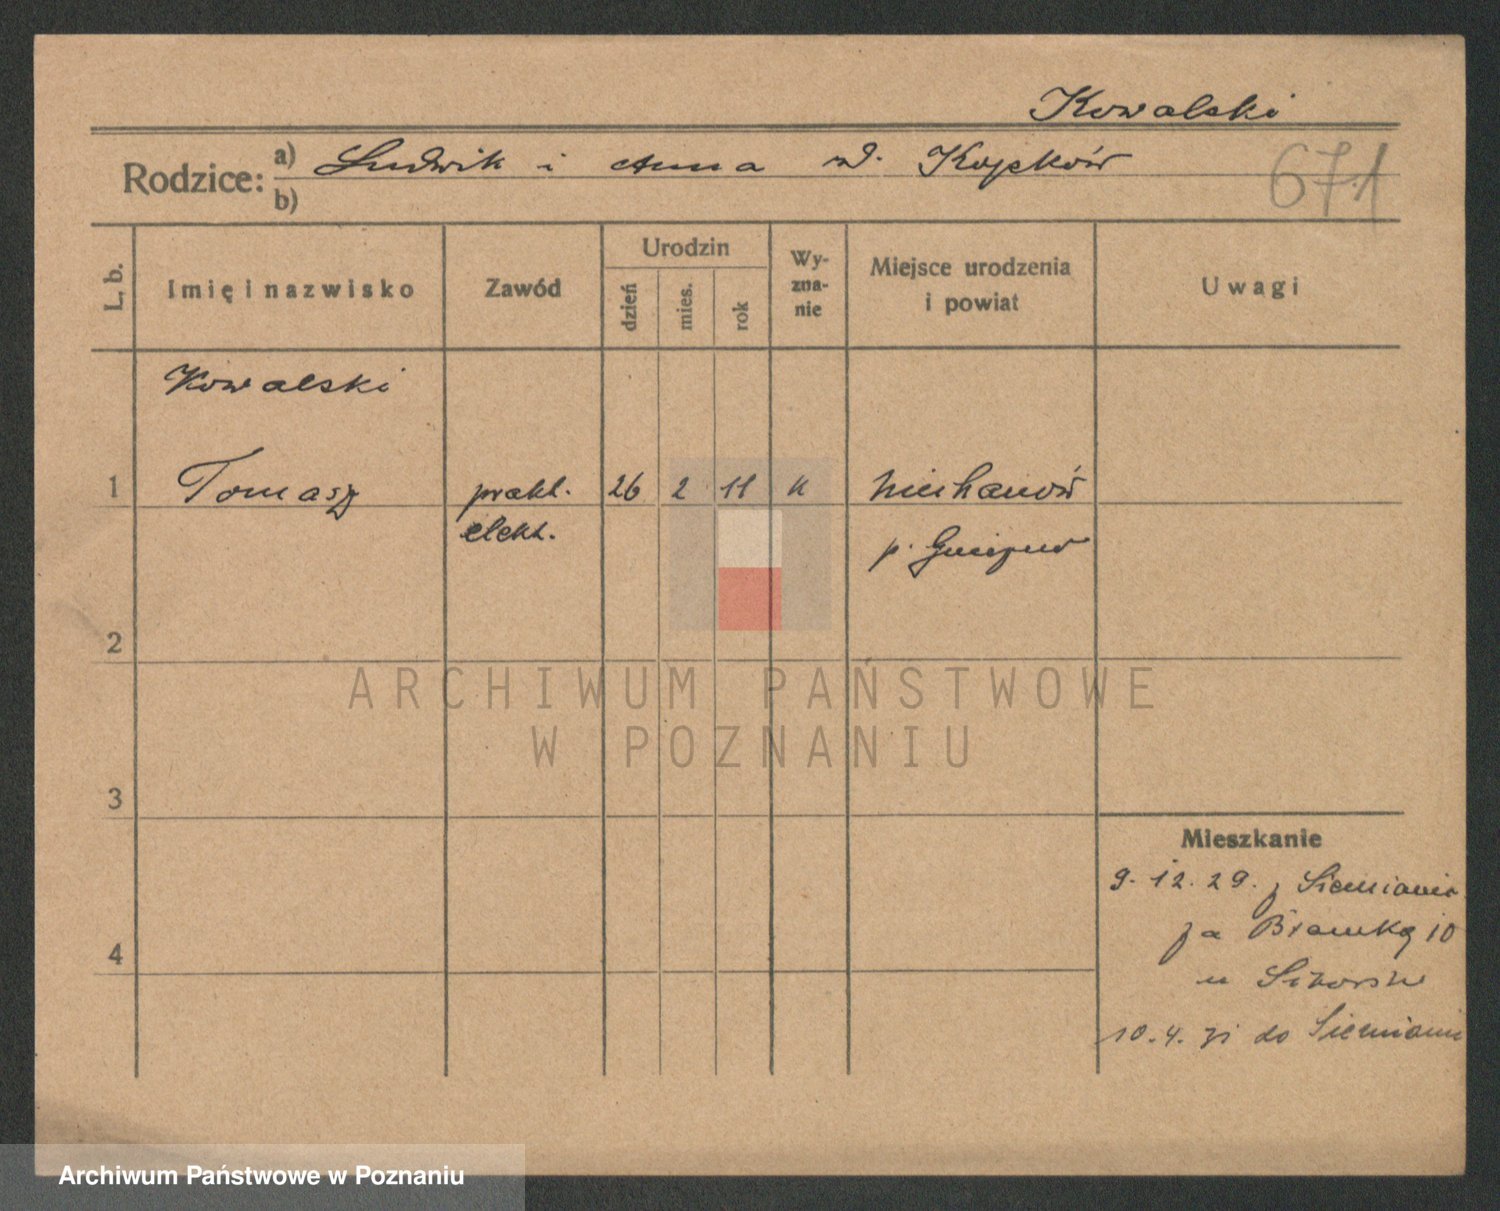 Kowalski
Rodzice: a) Ludwik i Anna
b)
671
L. b.
Imię i nazwisko
Zawód
Urodzin
dzień
mies.
rok
Wy-
zna-
nie
Miejsce urodzenia
i powiat
Uwagi
Kowalski
1 Tomasz prakt. 26 2 11 k
elekt.
p.
2
3
4
Mieszkanie
9. 12. 29. z
za Bramką 10
u
10. 4. 31 do
ARCHIWUM PAŃSTWOWE
W POZNANIU
Archiwum Państwowe w Poznaniu